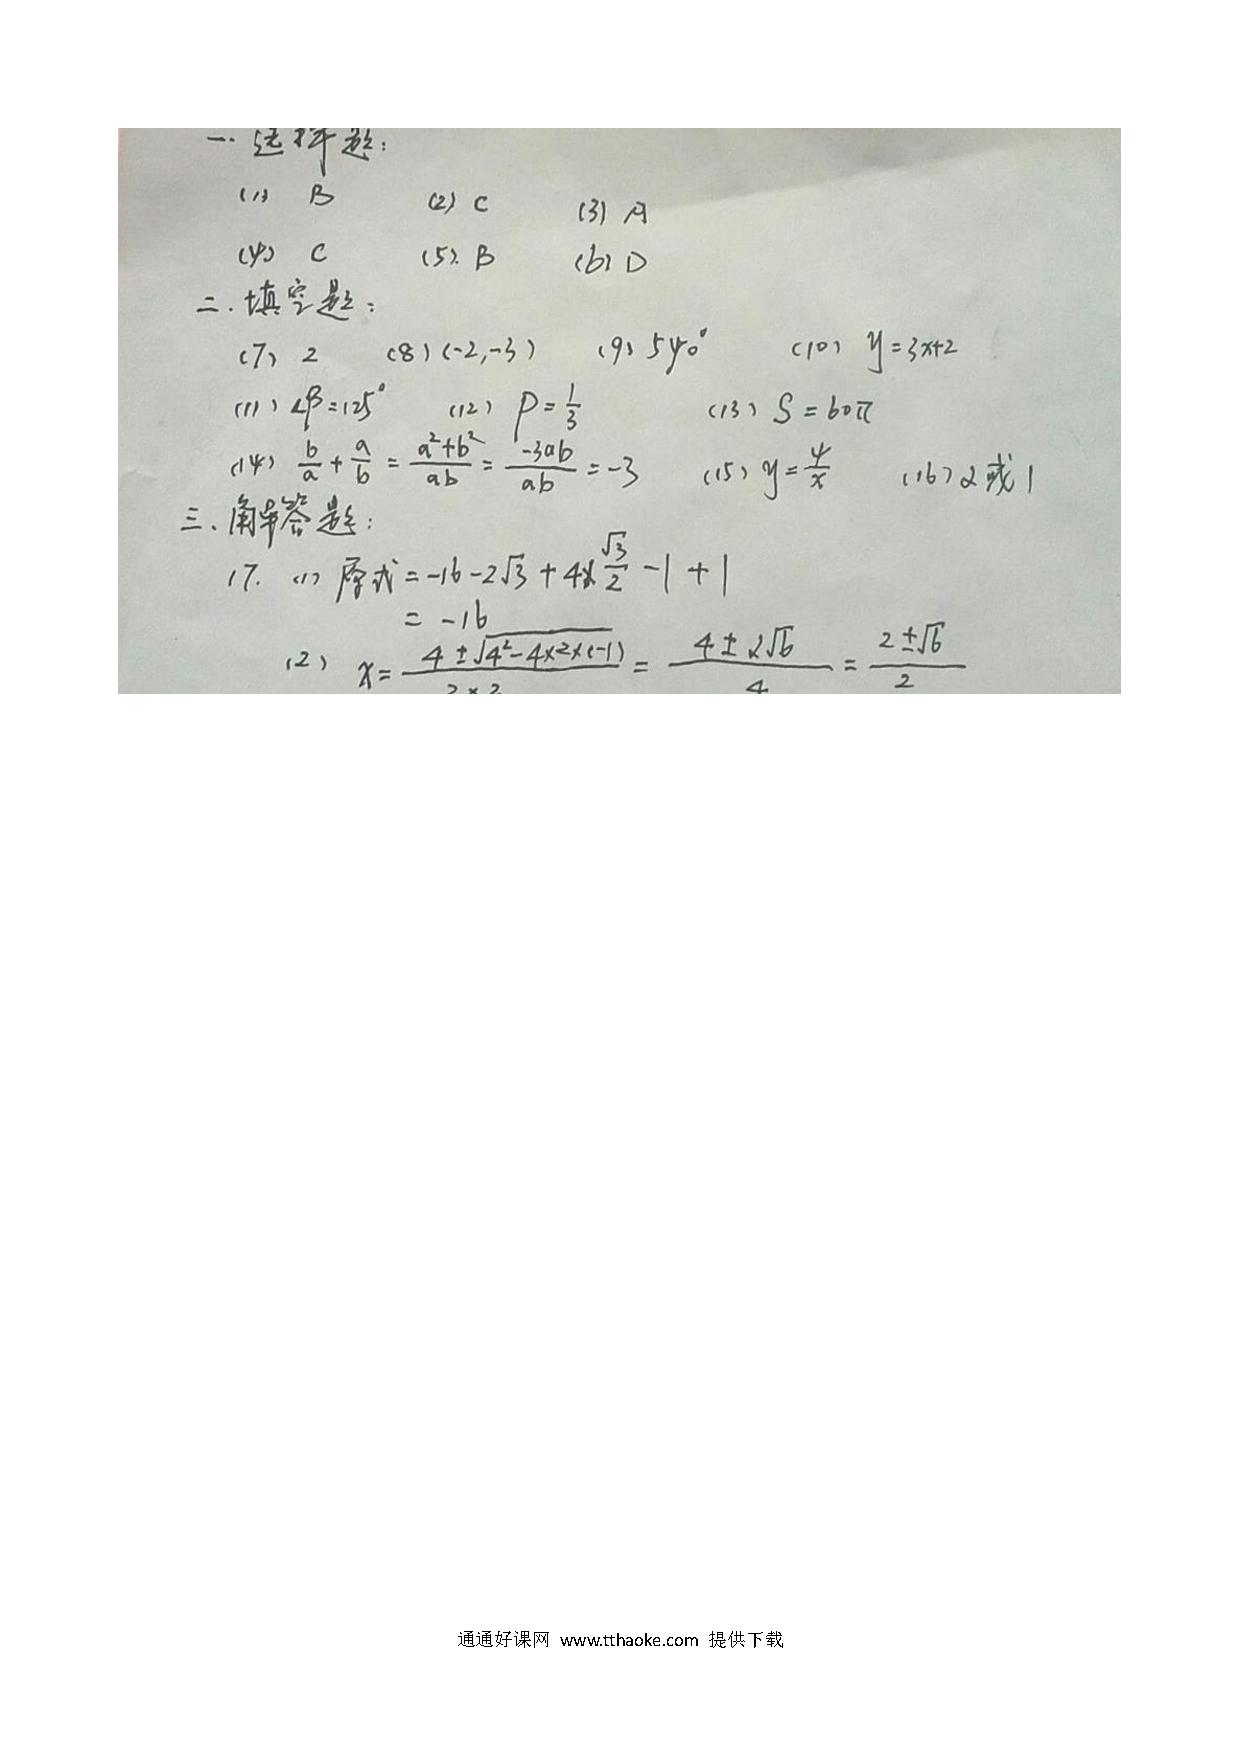 一.选择题:
(1) B (2) C (3) A
(4) C (5) B (6) D
二.填空题:
(7) 2 (8) (-2,-3) (9) 540° (10) y=3x+2
(11) ∠β=125° (12) P=1/3 (13) S=60π
(14) b/a + a/b = (a²+b²)/ab = -3ab/ab = -3 (15) y=4/x (16) 2或1
三.解答题:
17. (1) 原式=-16-2√3+4×√3/2-1+1
= -16
(2) x= (4±√(4²-4×2×(-1)))/(2×2) = (4±2√6)/4 = (2±√6)/2
通通好课网 www.tthaoke.com 提供下载